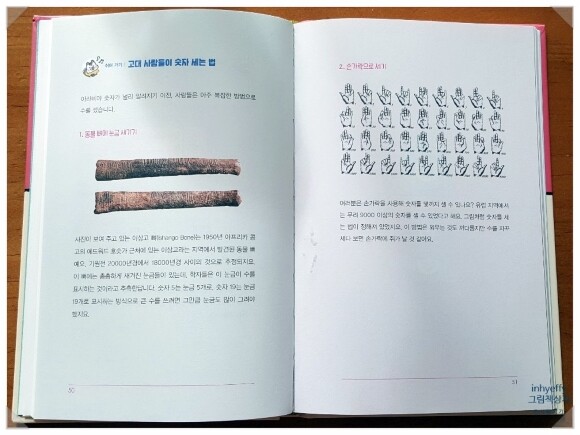 쉬어 가기 고대 사람들이 숫자 세는 법
아라비아 숫자가 널리 알려지기 이전, 사람들은 아주 복잡한 방법으로
수를 셌습니다.
1. 동물 뼈에 눈금 새기기
사진이 보여 주고 있는 이상고 뼈(Ishango Bone)는 1950년 아프리카 콩
고의 에드워드 호숫가 근처에 있는 이샹고라는 지역에서 발견된 동물 뼈
예요. 기원전 20000년경에서 18000년경 사이의 것으로 추정되지요.
이 뼈에는 촘촘하게 새겨진 눈금들이 있는데, 학자들은 이 눈금이 수를
표시하는 것이라고 추측한답니다. 숫자 5는 눈금 5개로, 숫자 19는 눈금
19개로 표시하는 방식으로 큰 수를 쓰려면 그만큼 눈금도 많이 그려야
했지요.
50
2. 손가락으로 세기
여러분은 손가락을 사용해 숫자를 몇까지 셀 수 있나요? 유럽 지역에서
는 무려 9000 이상의 숫자를 셀 수 있었다고 해요. 그림처럼 숫자를 세
는 법이 정해져 있었지요. 이 방법은 외우는 것도 까다롭지만 수를 자꾸
세다 보면 손가락에 쥐가 날 것 같아요.
51
inhyeff
그림책상